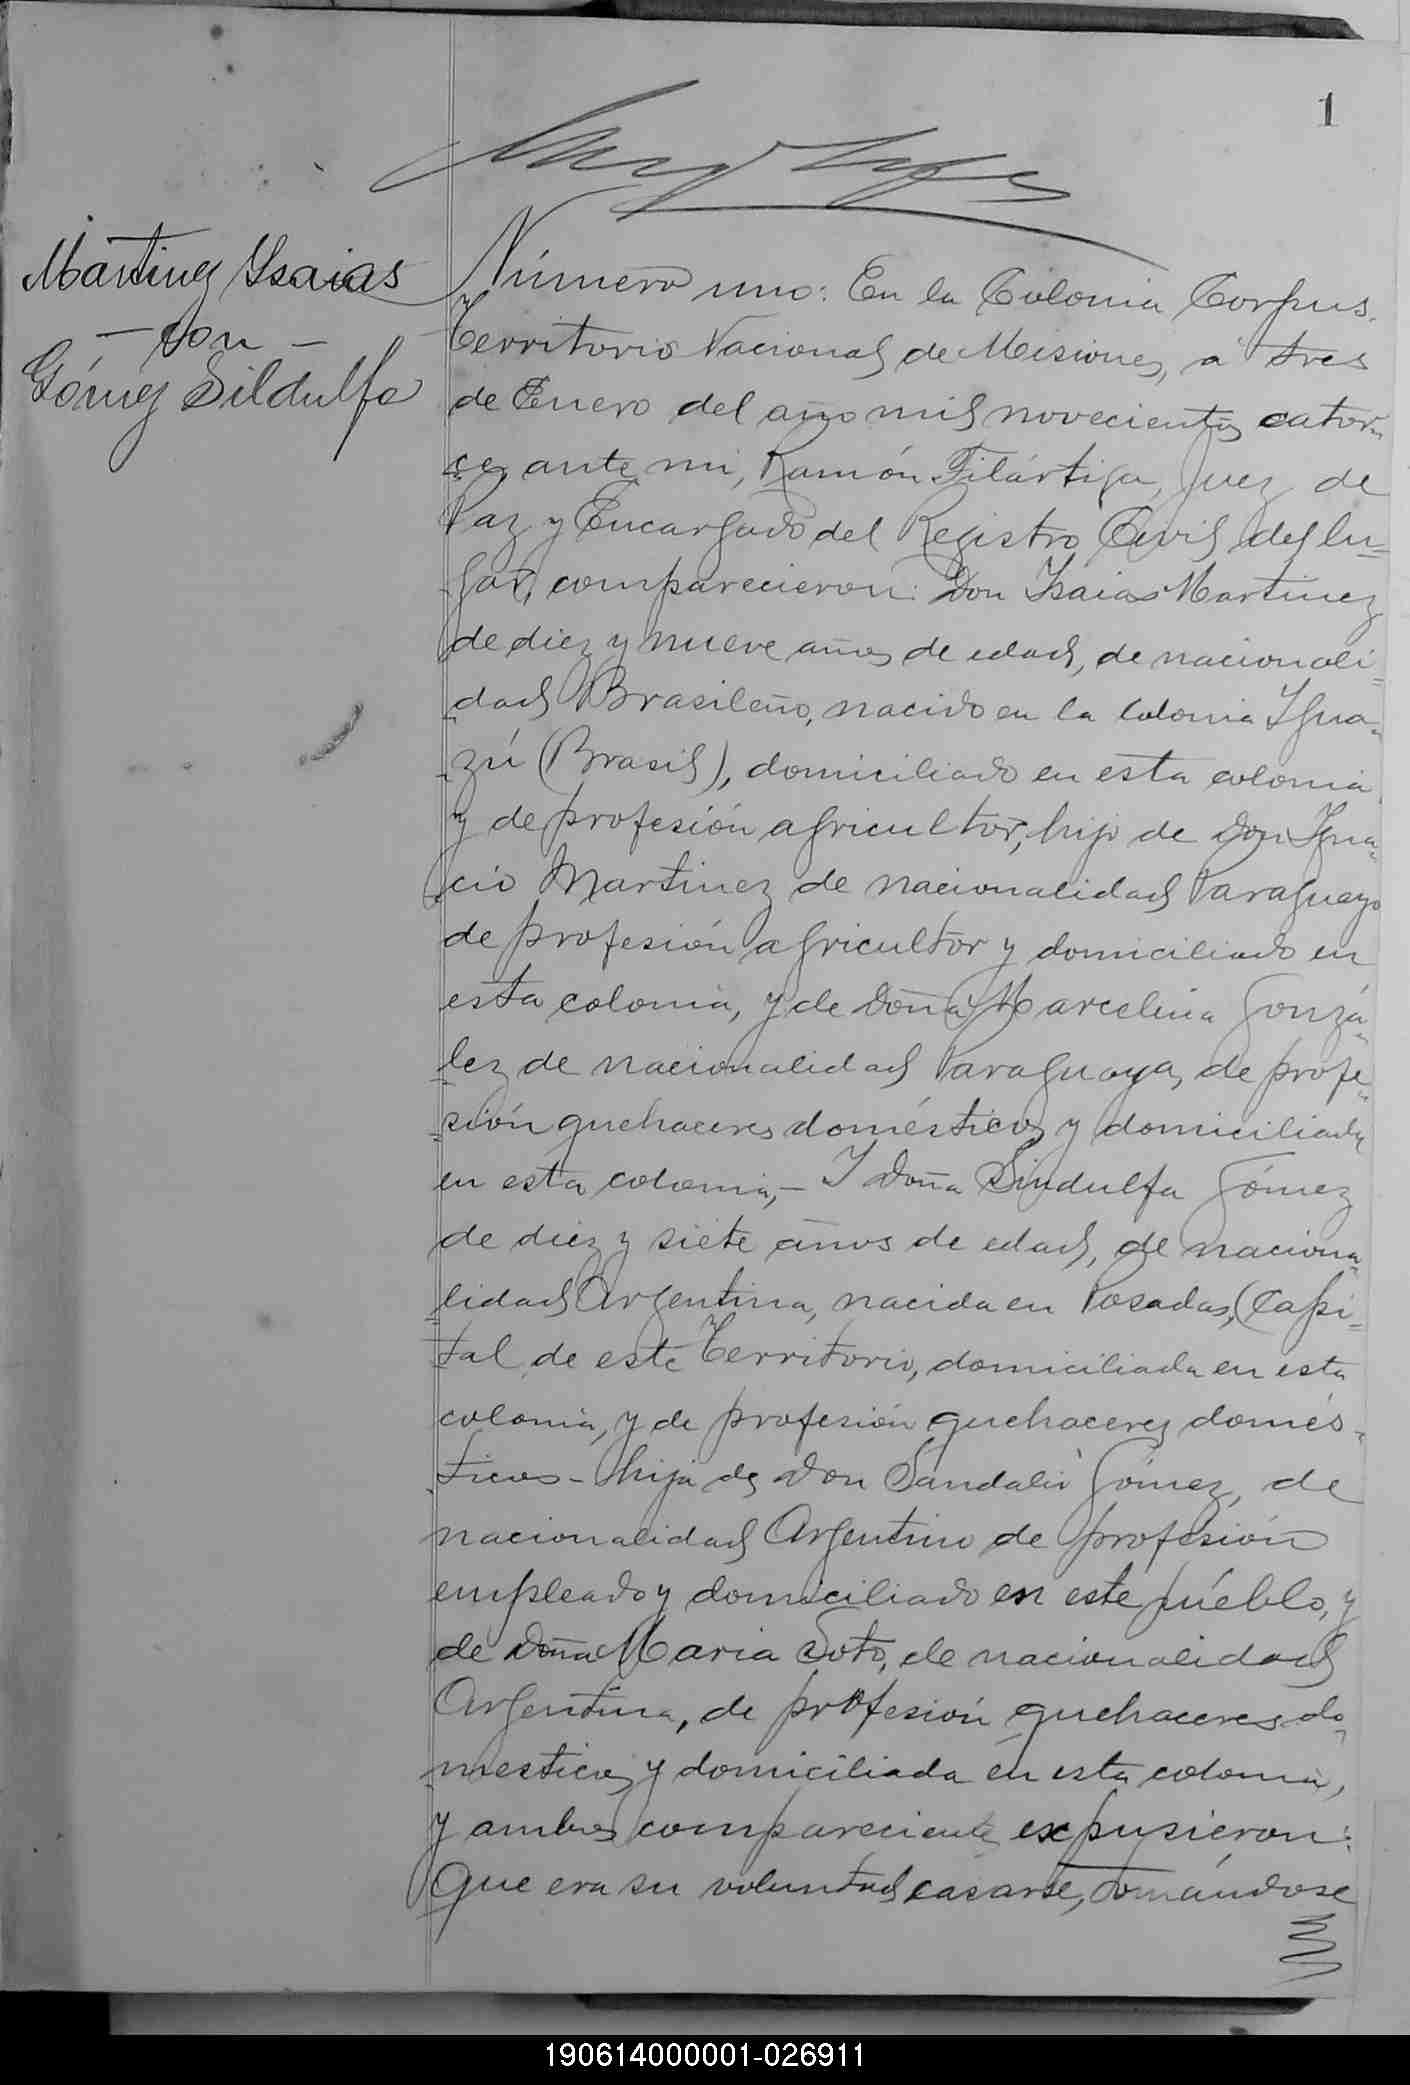 1
Martinez Isaias
— con —
Gómez Sildulfa
Número uno: En la Colonia Corpus,
Territorio Nacional de Misiones, á tres
de Enero del año mil novecientos cator-
ce, ante mi, Ramón Filártiga, Juez de
Paz y Encargado del Registro Civil del lu-
gar, comparecieron: Don Isaias Martinez
de diez y nueve años de edad, de nacionali-
dad Brasileño, nacido en la colonia Igua-
zú (Brasil), domiciliado en esta colonia
y de profesión agricultor, hijo de Don Igna-
cio Martinez de nacionalidad Paraguayo
de profesión agricultor y domiciliado en
esta colonia, y de Doña Marcelina Gonzá-
lez de nacionalidad Paraguaya, de profe-
sión quehaceres domésticos y domiciliada
en esta colonia,- Y Doña Sindulfa Gómez
de diez y siete años de edad, de naciona-
lidad Argentina, nacida en Posadas, (Capi-
tal de este Territorio, domiciliada en esta
colonia, y de profesión quehaceres domés-
ticos - hija de Don Sandalio Gómez, de
nacionalidad Argentino de profesión
empleado y domiciliado en este pueblo, y
de Doña Maria Soto, de nacionalidad
Argentina, de profesión quehaceres do-
mesticos y domiciliada en esta colonia,
y ambos comparecientes expusieron:
Que era su voluntad casarse, tomándose
190614000001-026911